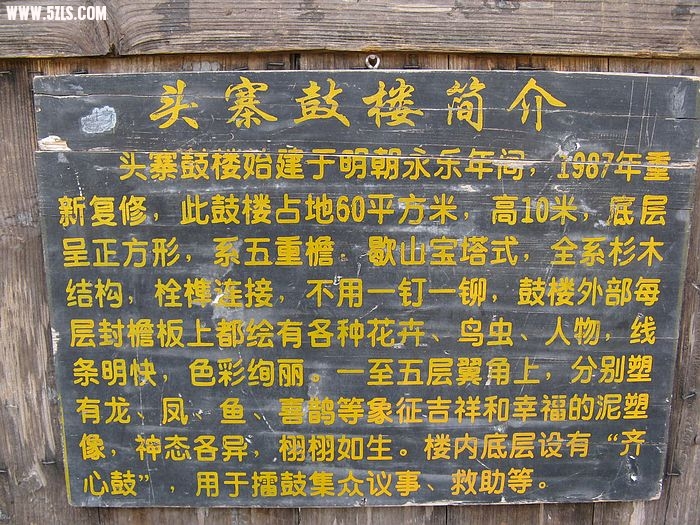 WWW.5ZLS.COM
头寨鼓楼简介
头寨鼓楼始建于明朝永乐年间，1987年重
新复修，此鼓楼占地60平方米，高10米，底层
呈正方形，系五重檐。歇山宝塔式，全系杉木
结构，栓榫连接，不用一钉一铆，鼓楼外部每
层封檐板上都绘有各种花卉、鸟虫、人物，线
条明快，色彩绚丽。一至五层翼角上，分别塑
有龙、凤、鱼、喜鹊等象征吉祥和幸福的泥塑
像，神态各异，栩栩如生。楼内底层设有“齐
心鼓”，用于擂鼓集众议事、救助等。